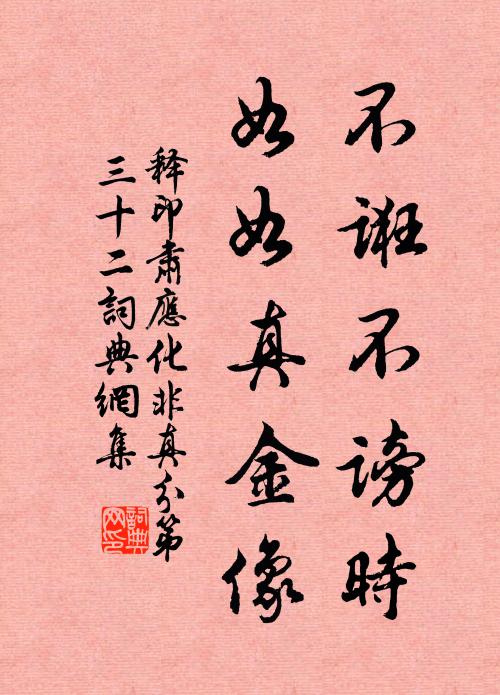 不诳不谤時
如如真金像
释印肅應化非真分第
三十二詞典網集
詞典网印